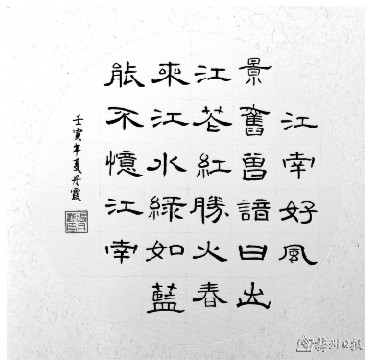 江南好風
景舊曾諳日出
江花紅勝火春
來江水綠如藍
能不憶江南
壬寅年夏丹霞